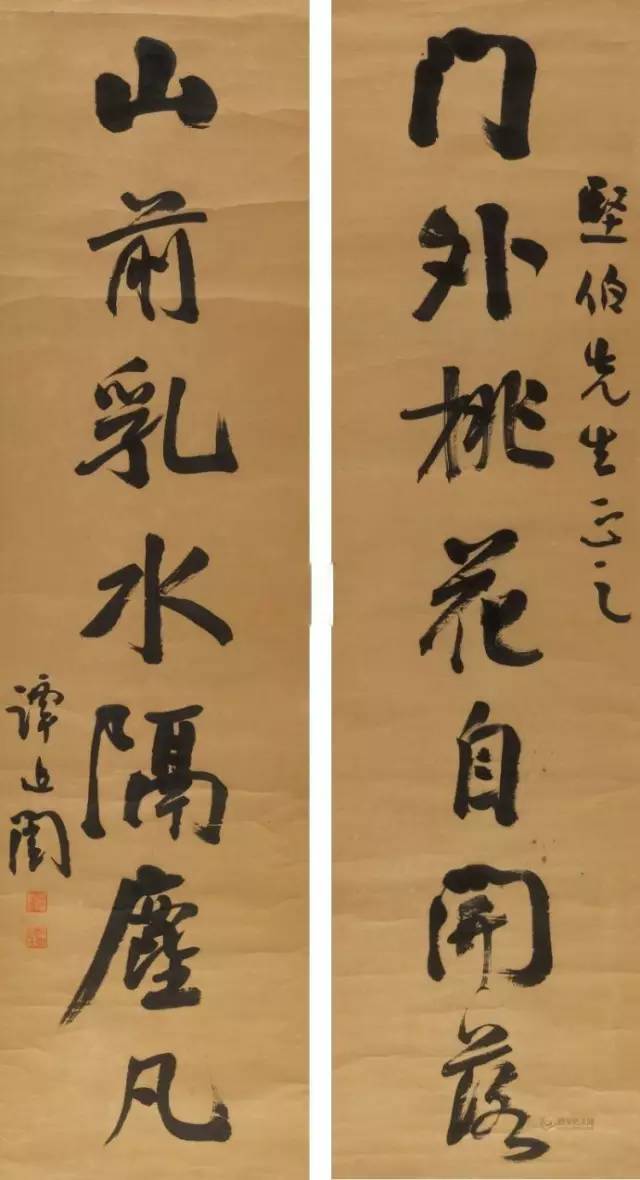 堅伯先生正之
门外桃花自開落
山前乳水隔塵凡
譚延闓